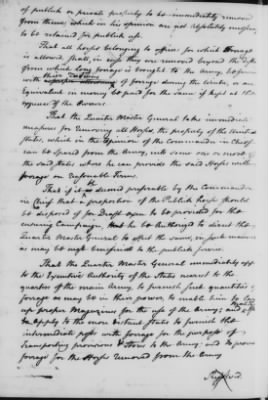 of publick or private property to be immediately remov
from thence, which in his opinion are not absolutely necessary
to be retained for publick use.
That all horses belonging to officers for which forage
is allowed, shall in case they are removed beyond the dist
from which long forage is brought to the Army, be furn
with their rations of forage during the winter, or an
Equivalent in money be paid for the same if kept at the
expence of the Owners
That the Quarter Master General take immediate
measures for removing all Horses, the property of the United
States, which in the opinion of the Commander in Chief
can be spared from the Army, into some one or more of
the said States where he can provide the said Horses with
forage on reasonable Terms.
That if it is deemed preferable by the Commander
in Chief that a proportion of the Publick horses should
be disposed of for Draft oxen to be provided for the
ensuing Campaign, that he be Authorized to direct the
Quarter Master General to effect the same, in such manner
as may be most beneficial to the publick service.
That the Quarter Master General immediately app
to the Executive Authority of the States nearest to the
quarters of the main Army, to furnish such quantities of
forage as may be in their power, to enable him to lay
up proper Magazines for the use of the Army; and
to Apply to the more distant States to furnish the
intermediate posts with forage for the purpose of
Transporting provisions & stores to the Army; and to provide
forage for the Horses removed from the Army
Resolved